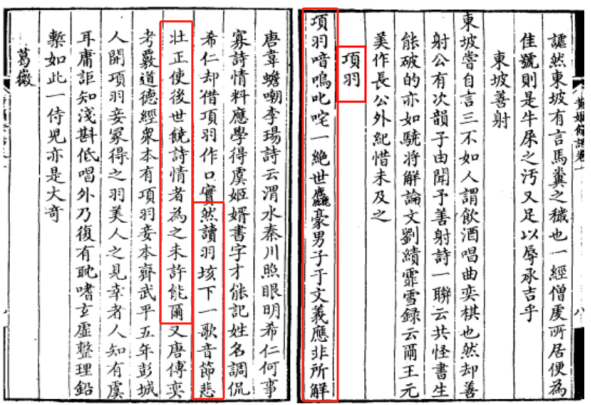 謳然東坡有言馬糞之穢也一經僧虔所居便為
佳號則是牛屎之汚又足以辱承吉乎
東坡善射
東坡嘗自言三不如人謂飲酒唱曲奕棋也然却善
射公有次韻子由聞予善射詩一聯云共怪書生
能破的亦如驍將解論文劉績霏雪録云爾王元
美作長公外紀惜未及之
項羽
項羽喑嗚叱咤一絶世麤豪男子于文義應非所解
唐韋蟾嘲李瑒詩云渭水秦川照眼明希仁何事
寡詩情料應學得虞姬婿書字才能記姓名調侃
希仁却借項羽作口實然讀羽垓下一歌音節悲
壯正使後世饒詩情者為之未許能爾又唐傅奕
考覈道德經衆本有項羽妾本齊武平五年彭城
人開項羽妾冢得之羽美人之見幸者人知有虞
耳庸詎知淺斟低唱外乃復有耽嗜玄虛整理鉛
槧如此一侍兒亦是大奇
葛薇